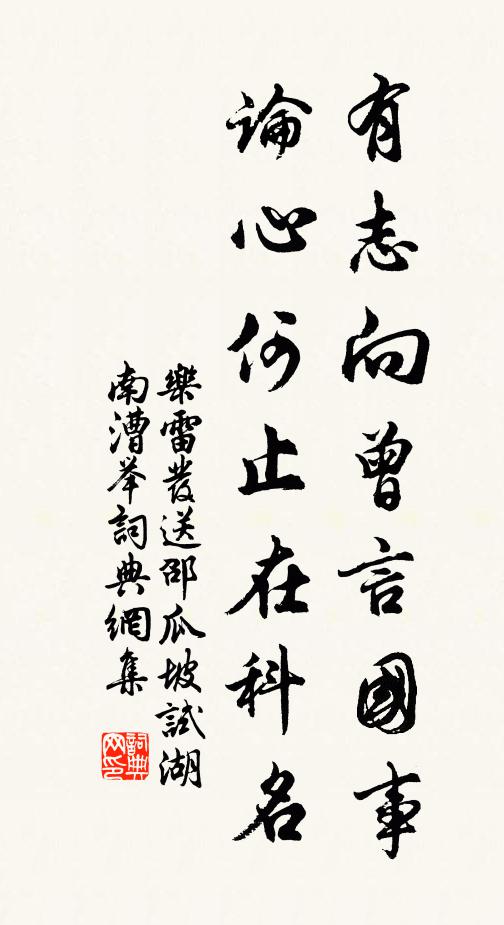 有志向曾言國事
論心何止在科名
樂雷發送邵瓜坡試湖
南漕举詞典網集
詞典網印